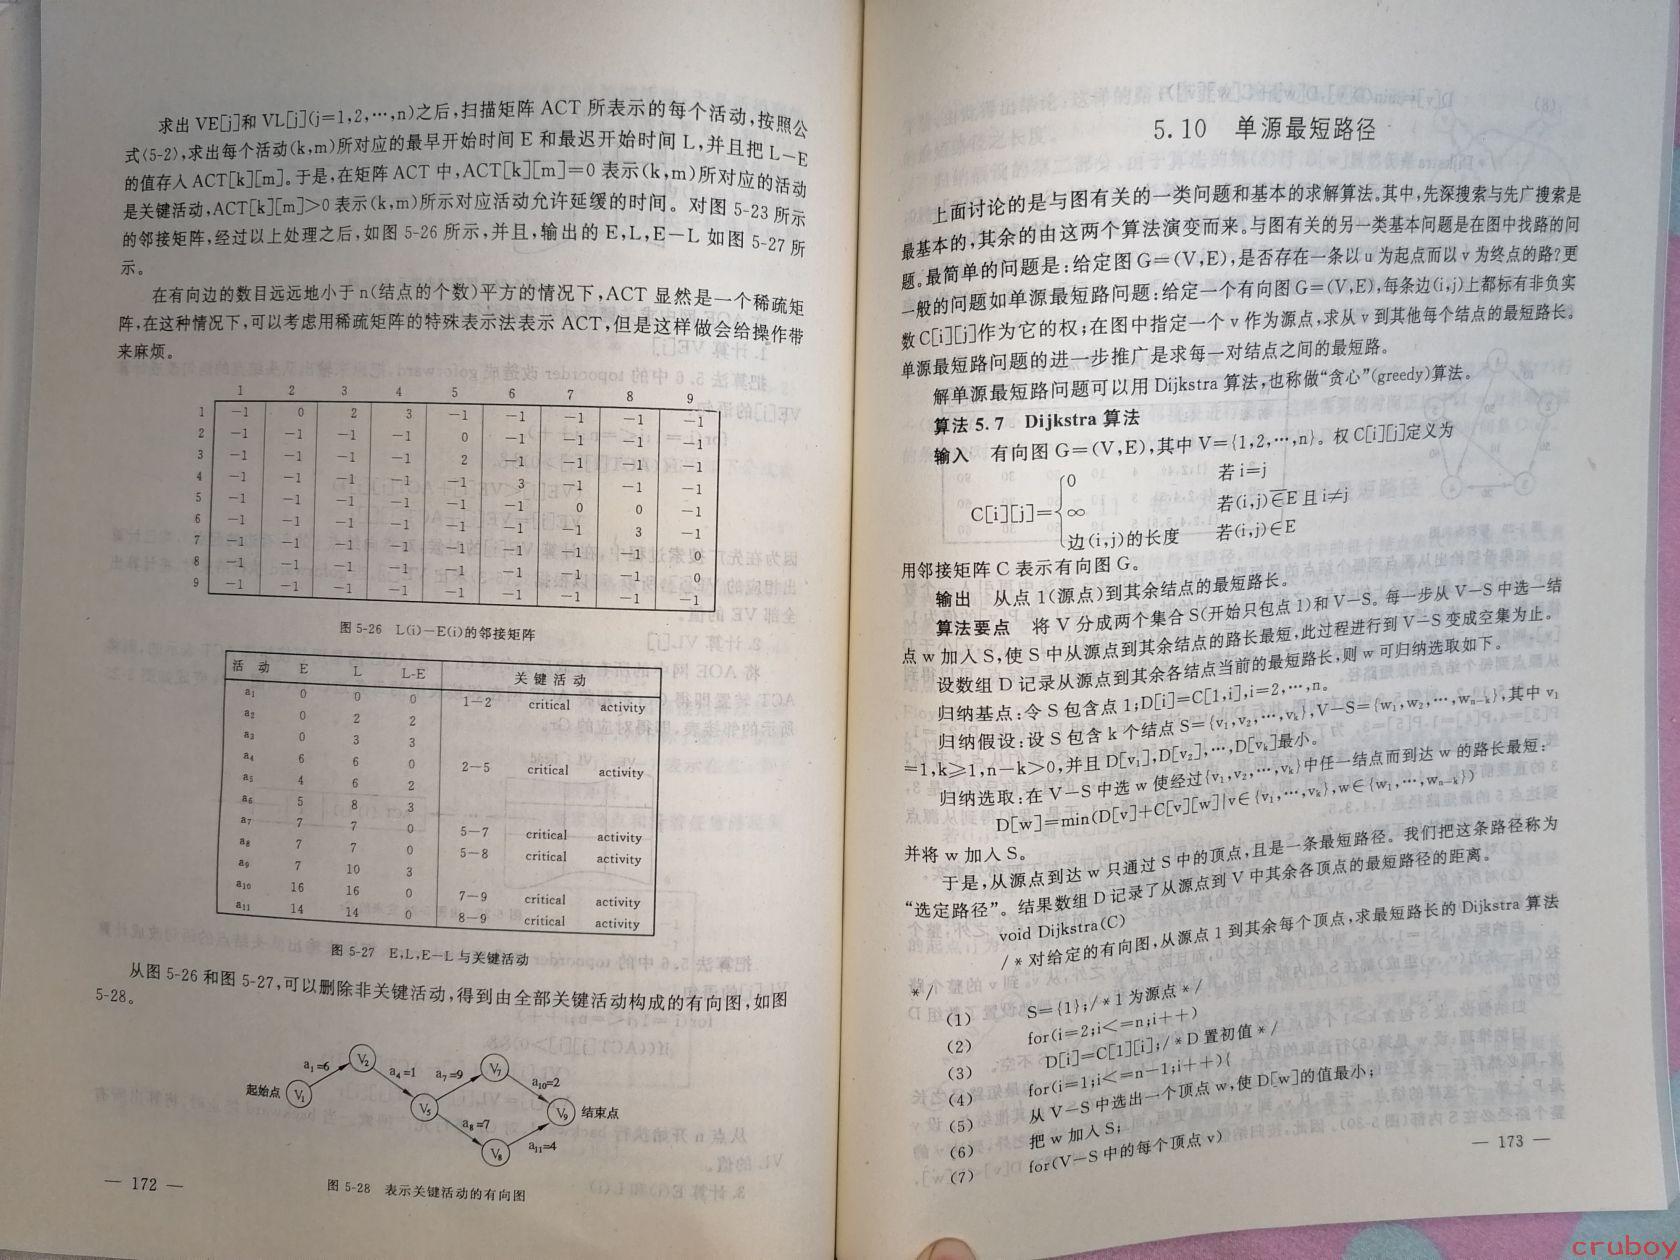 求出 VE[j]和 VL[j](j=1,2,…,n)之后,扫描矩阵 ACT 所表示的每个活动,按照公
式(5-2),求出每个活动(k,m)所对应的最早开始时间 E 和最迟开始时间 L,并且把 L－E
的值存入 ACT[k][m]。于是,在矩阵 ACT 中,ACT[k][m]=0 表示(k,m)所对应的活动
是关键活动,ACT[k][m]>0 表示(k,m)所示对应活动允许延缓的时间。对图 5-23 所示
的邻接矩阵,经过以上处理之后,如图 5-26 所示,并且,输出的 E,L,E－L 如图 5-27 所
示。
在有向边的数目远远地小于 n(结点的个数)平方的情况下,ACT 显然是一个稀疏矩
阵,在这种情况下,可以考虑用稀疏矩阵的特殊表示法表示 ACT,但是这样做会给操作带
来麻烦。
1 2 3 4 5 6 7 8 9
1 －1 0 2 3 －1 －1 －1 －1 －1
2 －1 －1 －1 －1 0 －1 －1 －1 －1
3 －1 －1 －1 －1 2 －1 －1 －1 －1
4 －1 －1 －1 －1 －1 3 －1 －1 －1
5 －1 －1 －1 －1 －1 －1 0 0 －1
6 －1 －1 －1 －1 －1 －1 －1 3 －1
7 －1 －1 －1 －1 －1 －1 －1 －1 0
8 －1 －1 －1 －1 －1 －1 －1 －1 0
9 －1 －1 －1 －1 －1 －1 －1 －1 －1
图 5-26 L(i)－E(i)的邻接矩阵
活 动 E L L-E 关 键 活 动
a₁ 0 0 0 1－2 critical activity
a₂ 0 2 2
a₃ 0 3 3
a₄ 6 6 0 2－5 critical activity
a₅ 4 6 2
a₆ 5 8 3
a₇ 7 7 0 5－7 critical activity
a₈ 7 7 0 5－8 critical activity
a₉ 7 10 3
a₁₀ 16 16 0 7－9 critical activity
a₁₁ 14 14 0 8－9 critical activity
图 5-27 E,L,E－L 与关键活动
从图 5-26 和图 5-27,可以删除非关键活动,得到由全部关键活动构成的有向图,如图
5-28。
起始点 V₁ a₁=6 V₂ a₄=1 V₅ a₇=9 V₇ a₁₀=2 V₉ 结束点
a₈=7 V₈ a₁₁=4
图 5-28 表示关键活动的有向图
— 172 —
5.10 单源最短路径
上面讨论的是与图有关的一类问题和基本的求解算法。其中,先深搜索与先广搜索是
最基本的,其余的由这两个算法演变而来。与图有关的另一类基本问题是在图中找路的问
题。最简单的问题是:给定图 G=(V,E),是否存在一条以 u 为起点而以 v 为终点的路?更
一般的问题如单源最短路问题:给定一个有向图 G=(V,E),每条边(i,j)上都标有非负实
数 C[i][j]作为它的权;在图中指定一个 v 作为源点,求从 v 到其他每个结点的最短路长。
单源最短路问题的进一步推广是求每一对结点之间的最短路。
解单源最短路问题可以用 Dijkstra 算法,也称做“贪心”(greedy)算法。
算法 5.7 Dijkstra 算法
输入 有向图 G=(V,E),其中 V={1,2,…,n}。权 C[i][j]定义为
0 若 i=j
C[i][j]= ∞ 若(i,j)∈̄E 且 i≠j
边(i,j)的长度 若(i,j)∈E
用邻接矩阵 C 表示有向图 G。
输出 从点 1(源点)到其余结点的最短路长。
算法要点 将 V 分成两个集合 S(开始只包点 1)和 V－S。每一步从 V－S 中选一结
点 w 加入 S,使 S 中从源点到其余结点的路长最短,此过程进行到 V－S 变成空集为止。
设数组 D 记录从源点到其余各结点当前的最短路长,则 w 可归纳选取如下。
归纳基点:令 S 包含点 1;D[i]=C[1,i],i=2,…,n。
归纳假设:设 S 包含 k 个结点 S={v₁,v₂,…,vₖ},V－S={w₁,w₂,…,wₙ₋ₖ},其中 v₁
=1,k≥1,n－k>0,并且 D[v₁],D[v₂],…,D[vₖ]最小。
归纳选取:在 V－S 中选 w 使经过{v₁,v₂,…,vₖ}中任一结点而到达 w 的路长最短:
D[w]=min(D[v]+C[v][w]|v∈{v₁,…,vₖ},w∈{w₁,…,wₙ₋ₖ})
并将 w 加入 S。
于是,从源点到达 w 只通过 S 中的顶点,且是一条最短路径。我们把这条路径称为
“选定路径”。结果数组 D 记录了从源点到 V 中其余各顶点的最短路径的距离。
void Dijkstra(C)
/*对给定的有向图,从源点 1 到其余每个顶点,求最短路长的 Dijkstra 算法
*/
(1) S={1};/*1 为源点*/
(2) for(i=2;i<=n;i++)
(3) D[i]=C[1][i];/*D 置初值*/
(4) for(i=1;i<=n－1;i++){
(5) 从 V－S 中选出一个顶点 w,使 D[w]的值最小;
(6) 把 w 加入 S;
(7) for(V－S 中的每个顶点 v)
— 173 —
cruboy